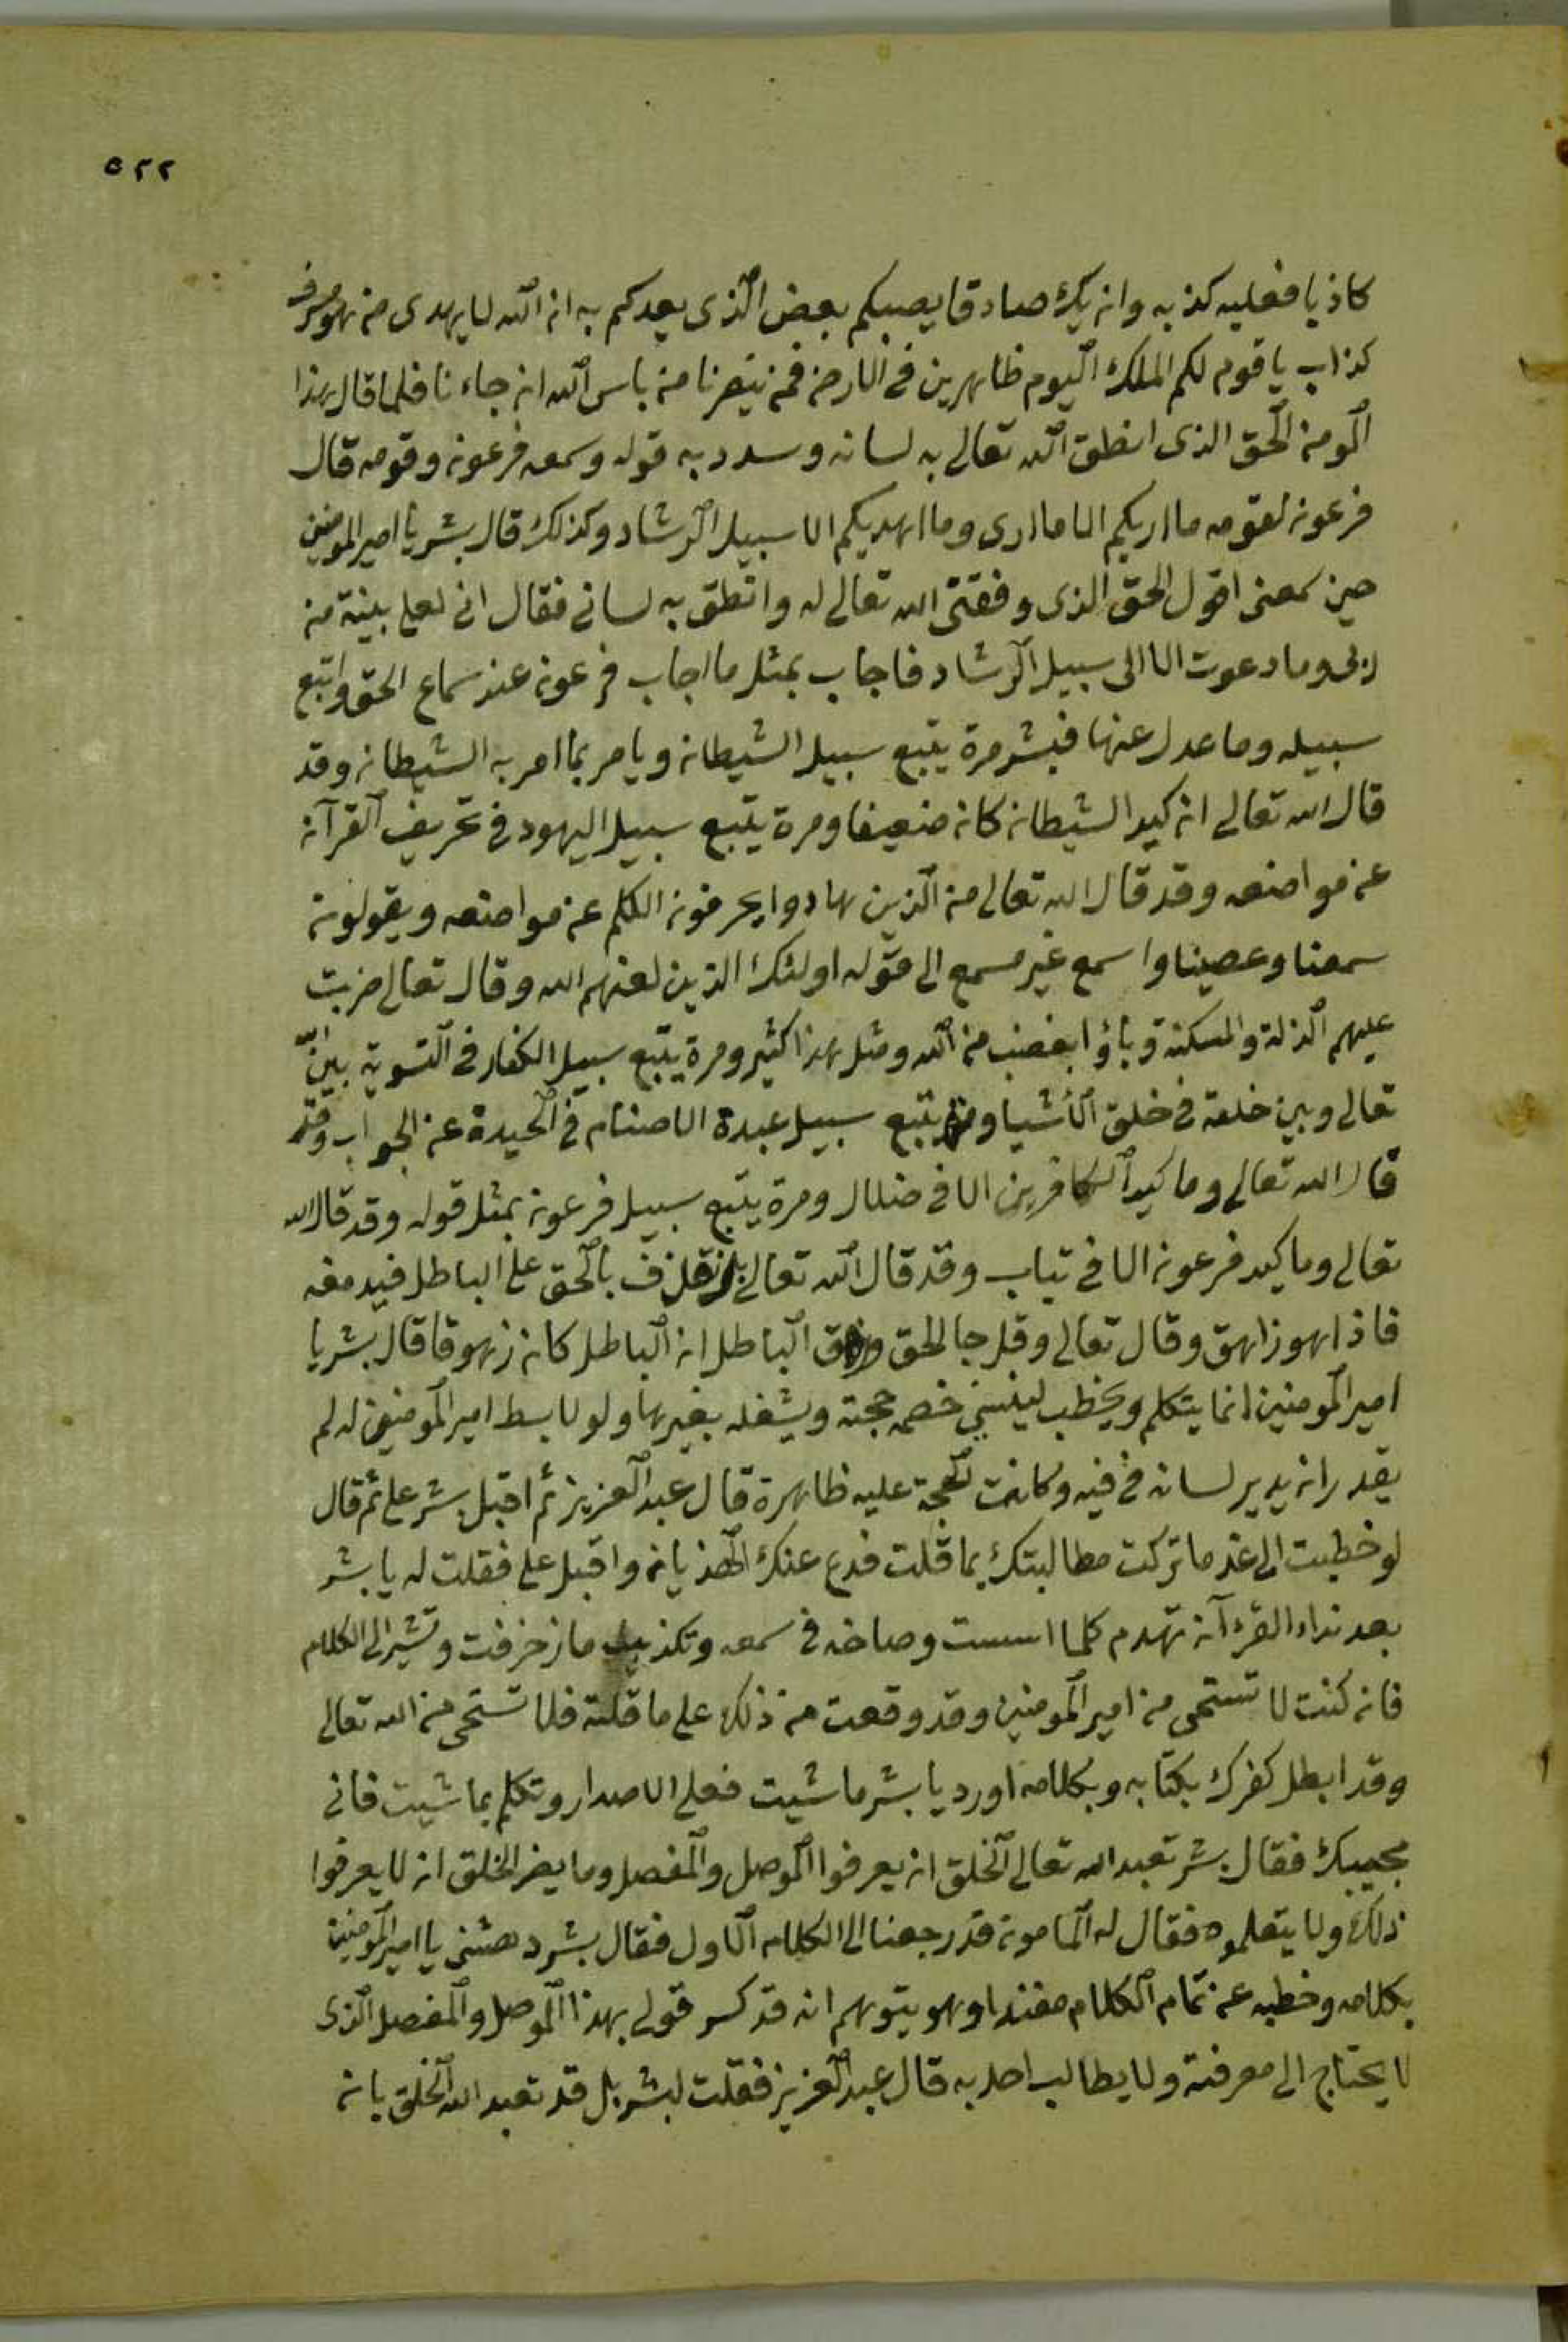 ٥٢٢
كاذبا فعليه كذبه وان يك صادقا يصبكم بعض الذى يعدكم به ان الله لا يهدى من هو مسرف
كذاب يا قوم لكم الملك اليوم ظاهرين فى الارض فمن ينصرنا من باس الله ان جاءنا فلما قال هذا
المومن الحق الذى انطق الله تعالى به لسانه وسدد به قوله وسمعه فرعون وقومه قال
فرعون لقومه ما اريكم الا ما ارى وما اهديكم الا سبيل الرشاد وكذلك قال بشر يا امير المومنين
حين سمعنى اقول الحق الذى وفقنى الله تعالى له وانطق به لسانى فقال انى لعلى بينة من
ربى وما دعوت الا الى سبيل الرشاد فاجاب بمثل ما اجاب فرعون عند سماع الحق واتبع
سبيله وما عدل عنها فبشر مرة يتبع سبيل الشيطان ويامر بما امر به الشيطان وقد
قال الله تعالى ان كيد الشيطان كان ضعيفا ومرة يتبع سبيل اليهود فى تحريف القرآن
عن مواضعه وقد قال الله تعالى من الذين هادوا يحرفون الكلم عن مواضعه ويقولون
سمعنا وعصينا واسمع غير مسمع الى قوله اولئك الذين لعنهم الله وقال تعالى ضربت
عليهم الذلة والمسكنة وباؤا بغضب من الله ومثل هذا كثير ومرة يتبع سبيل الكفار فى التسوية بين الله
تعالى وبين خلقه فى خلق الأشيا ومرة يتبع سبيل عبدة الاصنام فى الحيدة عن الجواب وقد
قال الله تعالى وما كيد الكافرين الا فى ضلال ومرة يتبع سبيل فرعون بمثل قوله وقد قال الله
تعالى وما كيد فرعون الا فى تباب وقد قال الله تعالى بل نقذف بالحق على الباطل فيدمغه
فاذا هو زاهق وقال تعالى وقل جا الحق وزهق الباطل ان الباطل كان زهوقا قال بشر يا
امير المومنين انما يتكلم ويخطب لينسى خصمه حجته ويشغله بغيرها ولولا بسط امير المومنين له لم
يقدر ان يدير لسانه فى فيه وكانت الحجة عليه ظاهرة قال عبد العزيز ثم اقبل بشر على ثم قال
لو خطبت الى غد ما تركت مطالبتك بما قلت فدع عنك الهذيان واقبل على فقلت له يا بشر
بعد نداء القرءآن تهدم كلما اسست وصاخه فى سمعه وتكذيب ما زخرفت وتشير الى الكلام
فان كنت لا تستحى من امير المومنين وقد وقعت من ذلك على ما قلته فلا تستحى من الله تعالى
وقد ابطل كفرك بكتابه وبكلامه اورد يا بشر ما شيت فعلى الاصدار وتكلم بما شيت فانى
مجيبك فقال بشر تعبد الله تعالى الخلق ان يعرفوا الموصل والمفصل وما يضر الخلق ان لا يعرفوا
ذلك ولا يتعلموه فقال له المامون قد رجعنا الى الكلام الاول فقال بشر دهشنى يا امير المومنين
بكلامه وخطبه عن تمام الكلام مفندا وهو يتوهم انه قد كسر قولى بهذا الموصل والمفصل الذى
لا يحتاج الى معرفته ولا يطالب احد به قال عبد العزيز فقلت لبشر بل قد تعبد الله الخلق بان